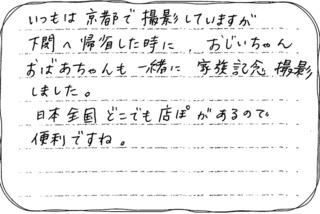 いつもは京都で撮影していますが
下関へ帰省した時に、おじいちゃん
おばあちゃんも一緒に家族記念撮影
しました。
日本全国どこでも店ぽがあるので
便利ですね。